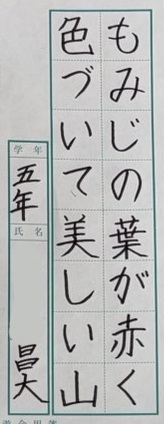 もみじの葉が赤く
色づいて美しい山
学年
五年
氏名
昌大